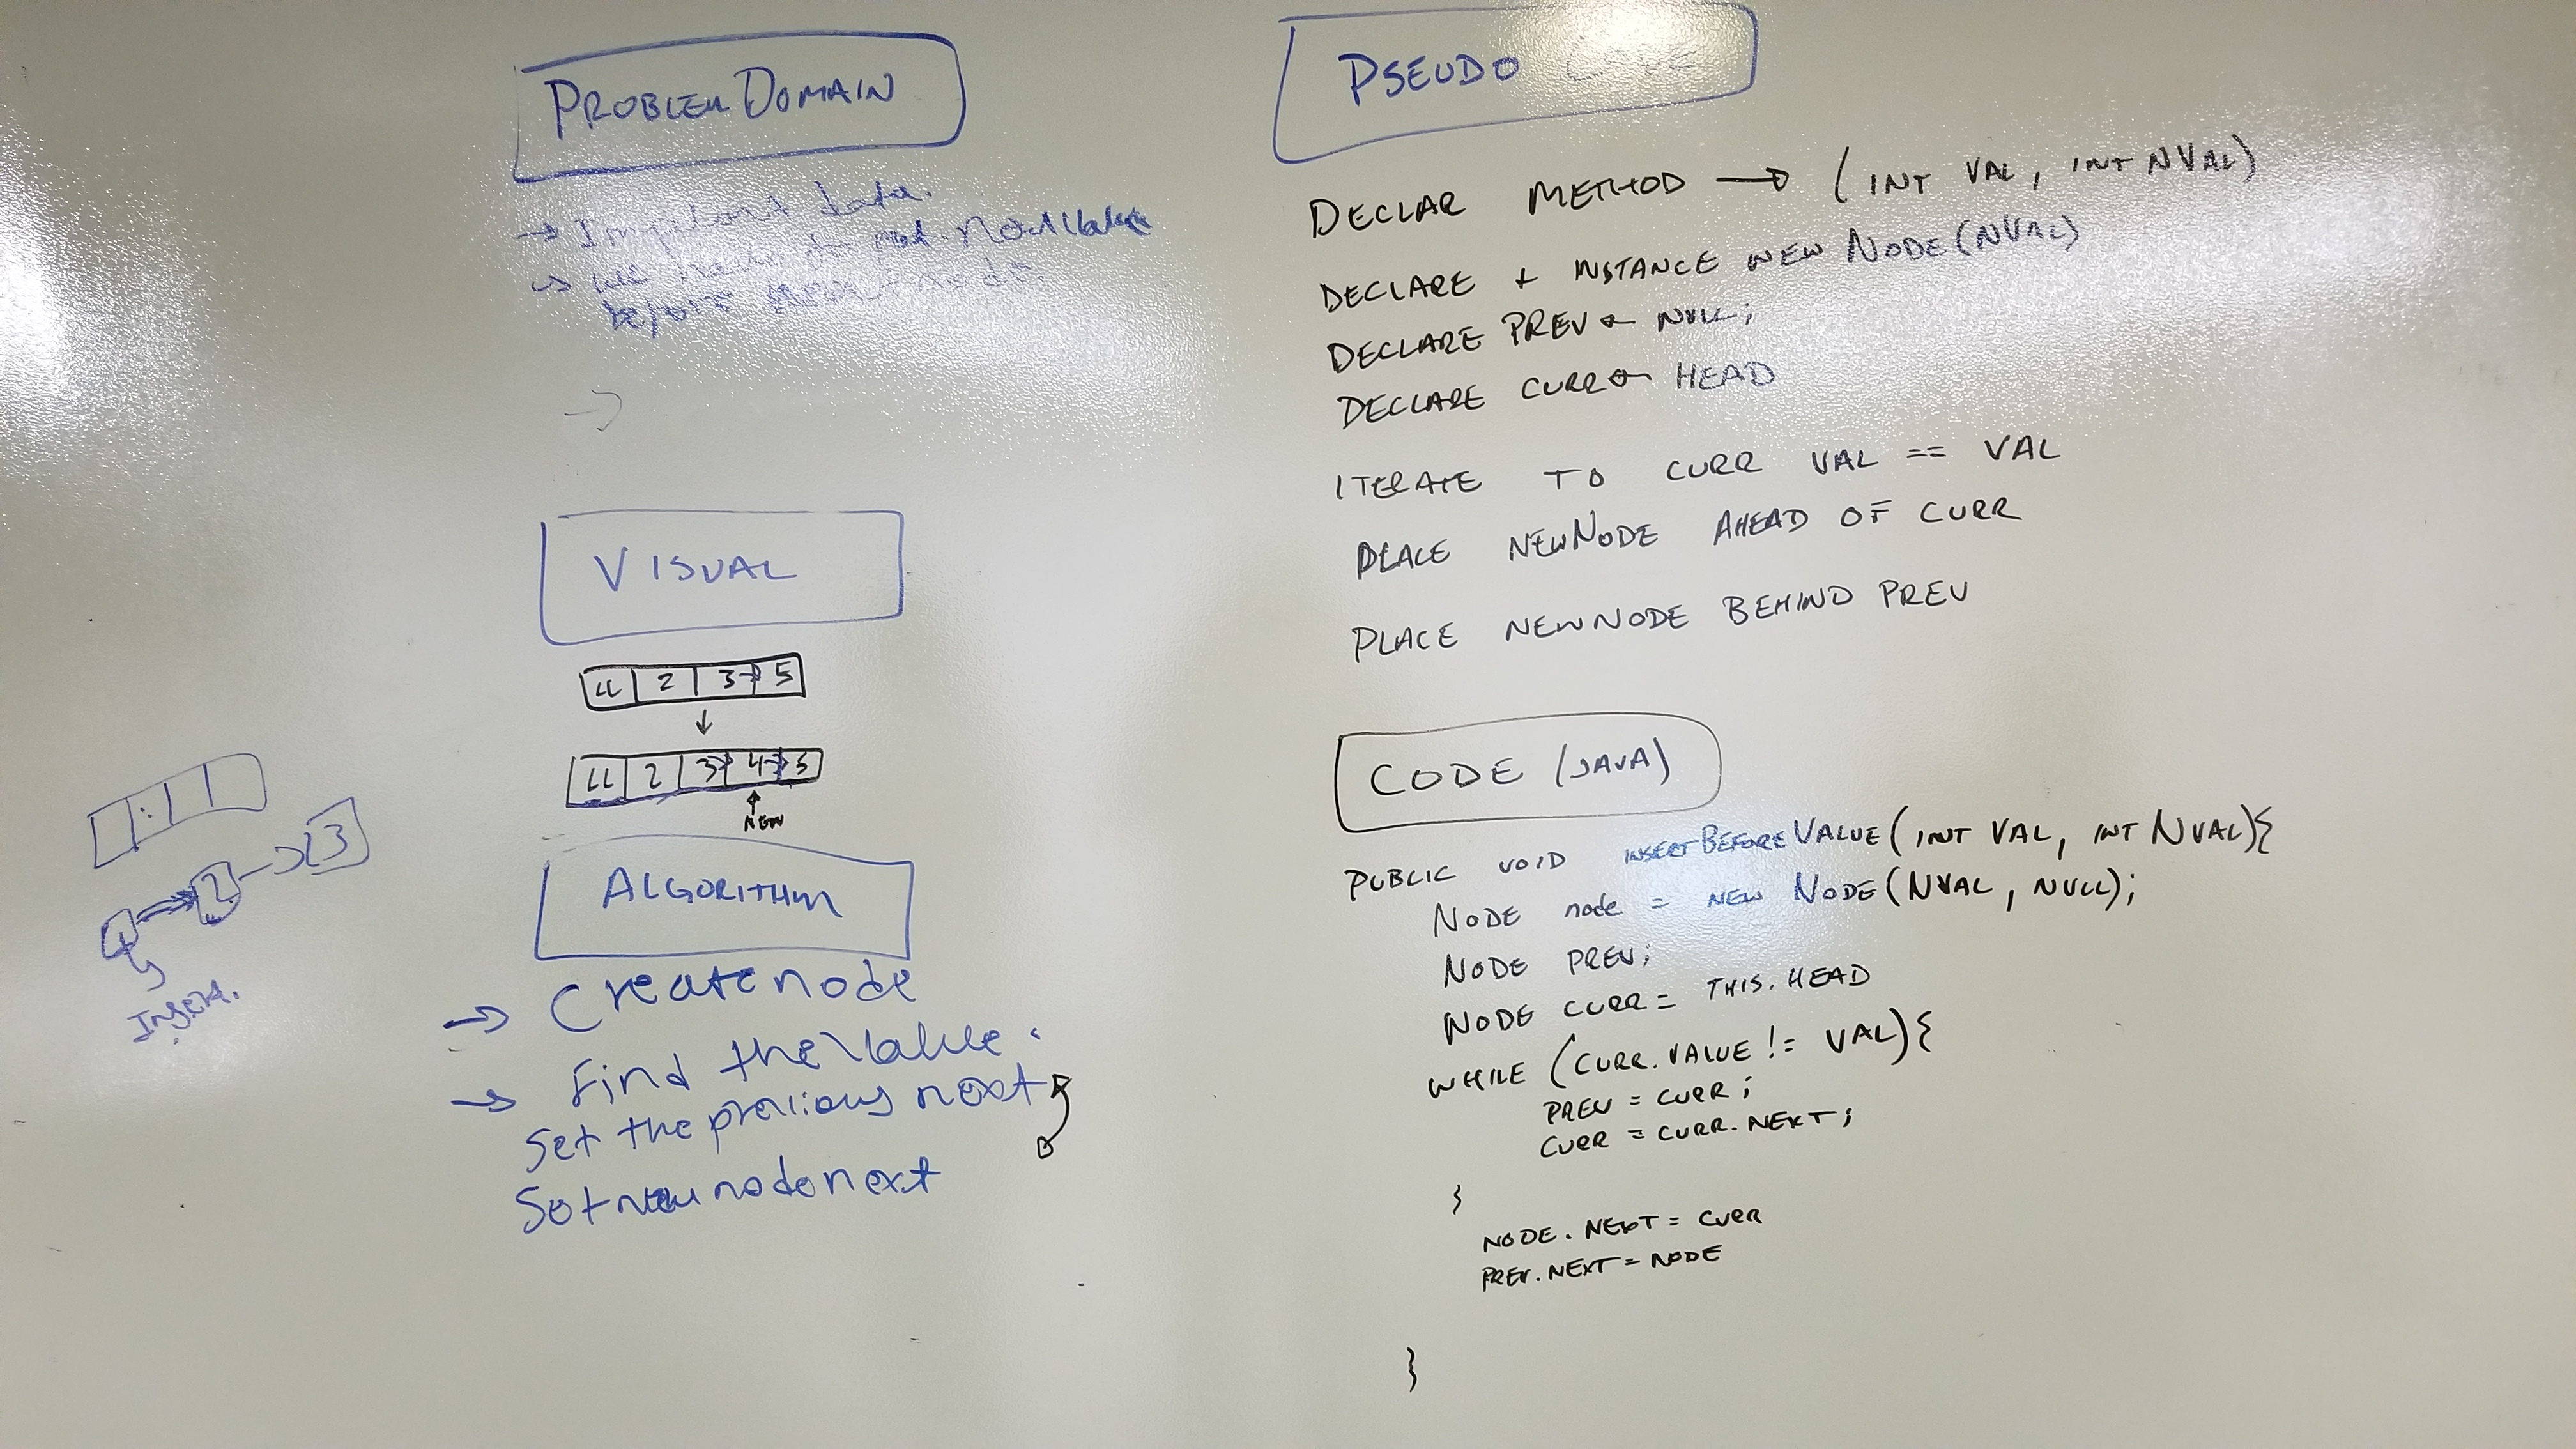 PROBLEM DOMAIN
→ Important data.
→ we have to set next Value
before node.
→
VISUAL
LL 2 3→ 5
↓
LL 2 3→ 4→ 5
↑
NEW
ALGORITHM
→ Create node
→ Find the Value.
Set the previous next
Set new node next
2 → 3
Insert.
PSEUDO CODE
DECLAR METHOD → (INT VAL, INT NVAL)
DECLARE + INSTANCE NEW NODE(NVAL)
DECLARE PREV ← NULL;
DECLARE CURR ← HEAD
ITERATE TO CURR VAL == VAL
PLACE NEWNODE AHEAD OF CURR
PLACE NEWNODE BEHIND PREV
CODE (JAVA)
PUBLIC VOID INSERTBEFOREVALUE(INT VAL, INT NVAL){
NODE node = NEW NODE(NVAL, NULL);
NODE PREV;
NODE CURR = THIS.HEAD
WHILE (CURR.VALUE != VAL){
PREV = CURR;
CURR = CURR.NEXT;
}
NODE.NEXT = CURR
PREV.NEXT = NODE
}